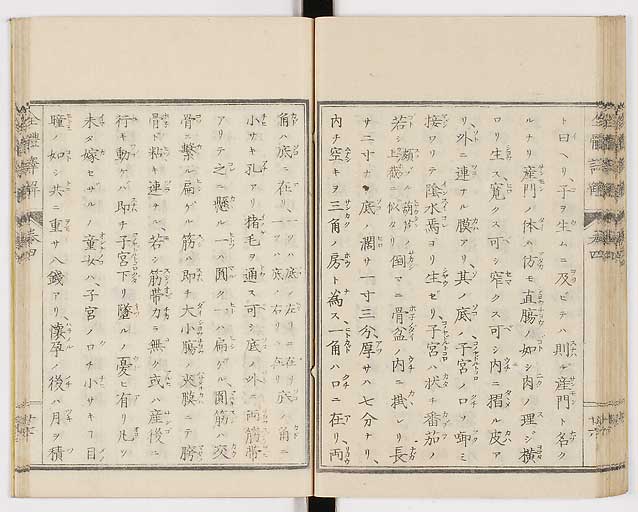 ト曰ヘリ、子ヲ生ムニ及ビテハ則チ産門ト名ク
ルナリ産門ノ体ハ彷モ直腸ノ如シ肉ノ理ジ横
ロリ生ス、寛クス可シ窄クス可シ内ニ摺ル皮ア
リ、外ニ連ナル膜アリ、其ノ底ノ子宮ノ口ヲ啣ミ
接ワリテ陰水焉ヨリ生ゼリ、子宮ハ状チ番茄ノ
若シ上
倒マニ骨盆ノ内ニ掛レリ長
サ二寸ナ、底ノ濶サ一寸三分厚サハ七分ナリ、
内チ空キヲ三角ノ房ト為ス、一角ハ口ニ在リ、両
角ハ底ニ在リ、一ツハ底ノ左リニ在リ一ツハ底ノ右リニ在リ底ノ角ニ
小サキ孔アリ猪毛ヲ通ス可シ底ノ外ニ両筋帯
アリテ之ニ懸ル一ハ圓ク一ハ扁ゲル、圓筋ハ交
骨ニ繋ル扁ゲル筋ハ即チ大小腸ノ夾膜ニテ胯
骨ト粘キ連ナル、若シ筋帯カラ無グ或ハ産後ニ
行キ動ケバ即チ子宮下リ墜ルノ憂ヒ有リ凡ソ
未タ嫁セサルノ童女ハ、子宮ノ口チ小サキ
目
瞳ノ如シ共ニ重サ八錢アリ、懐孕ノ後ハ月ヲ積
全體新論譯解
巻四